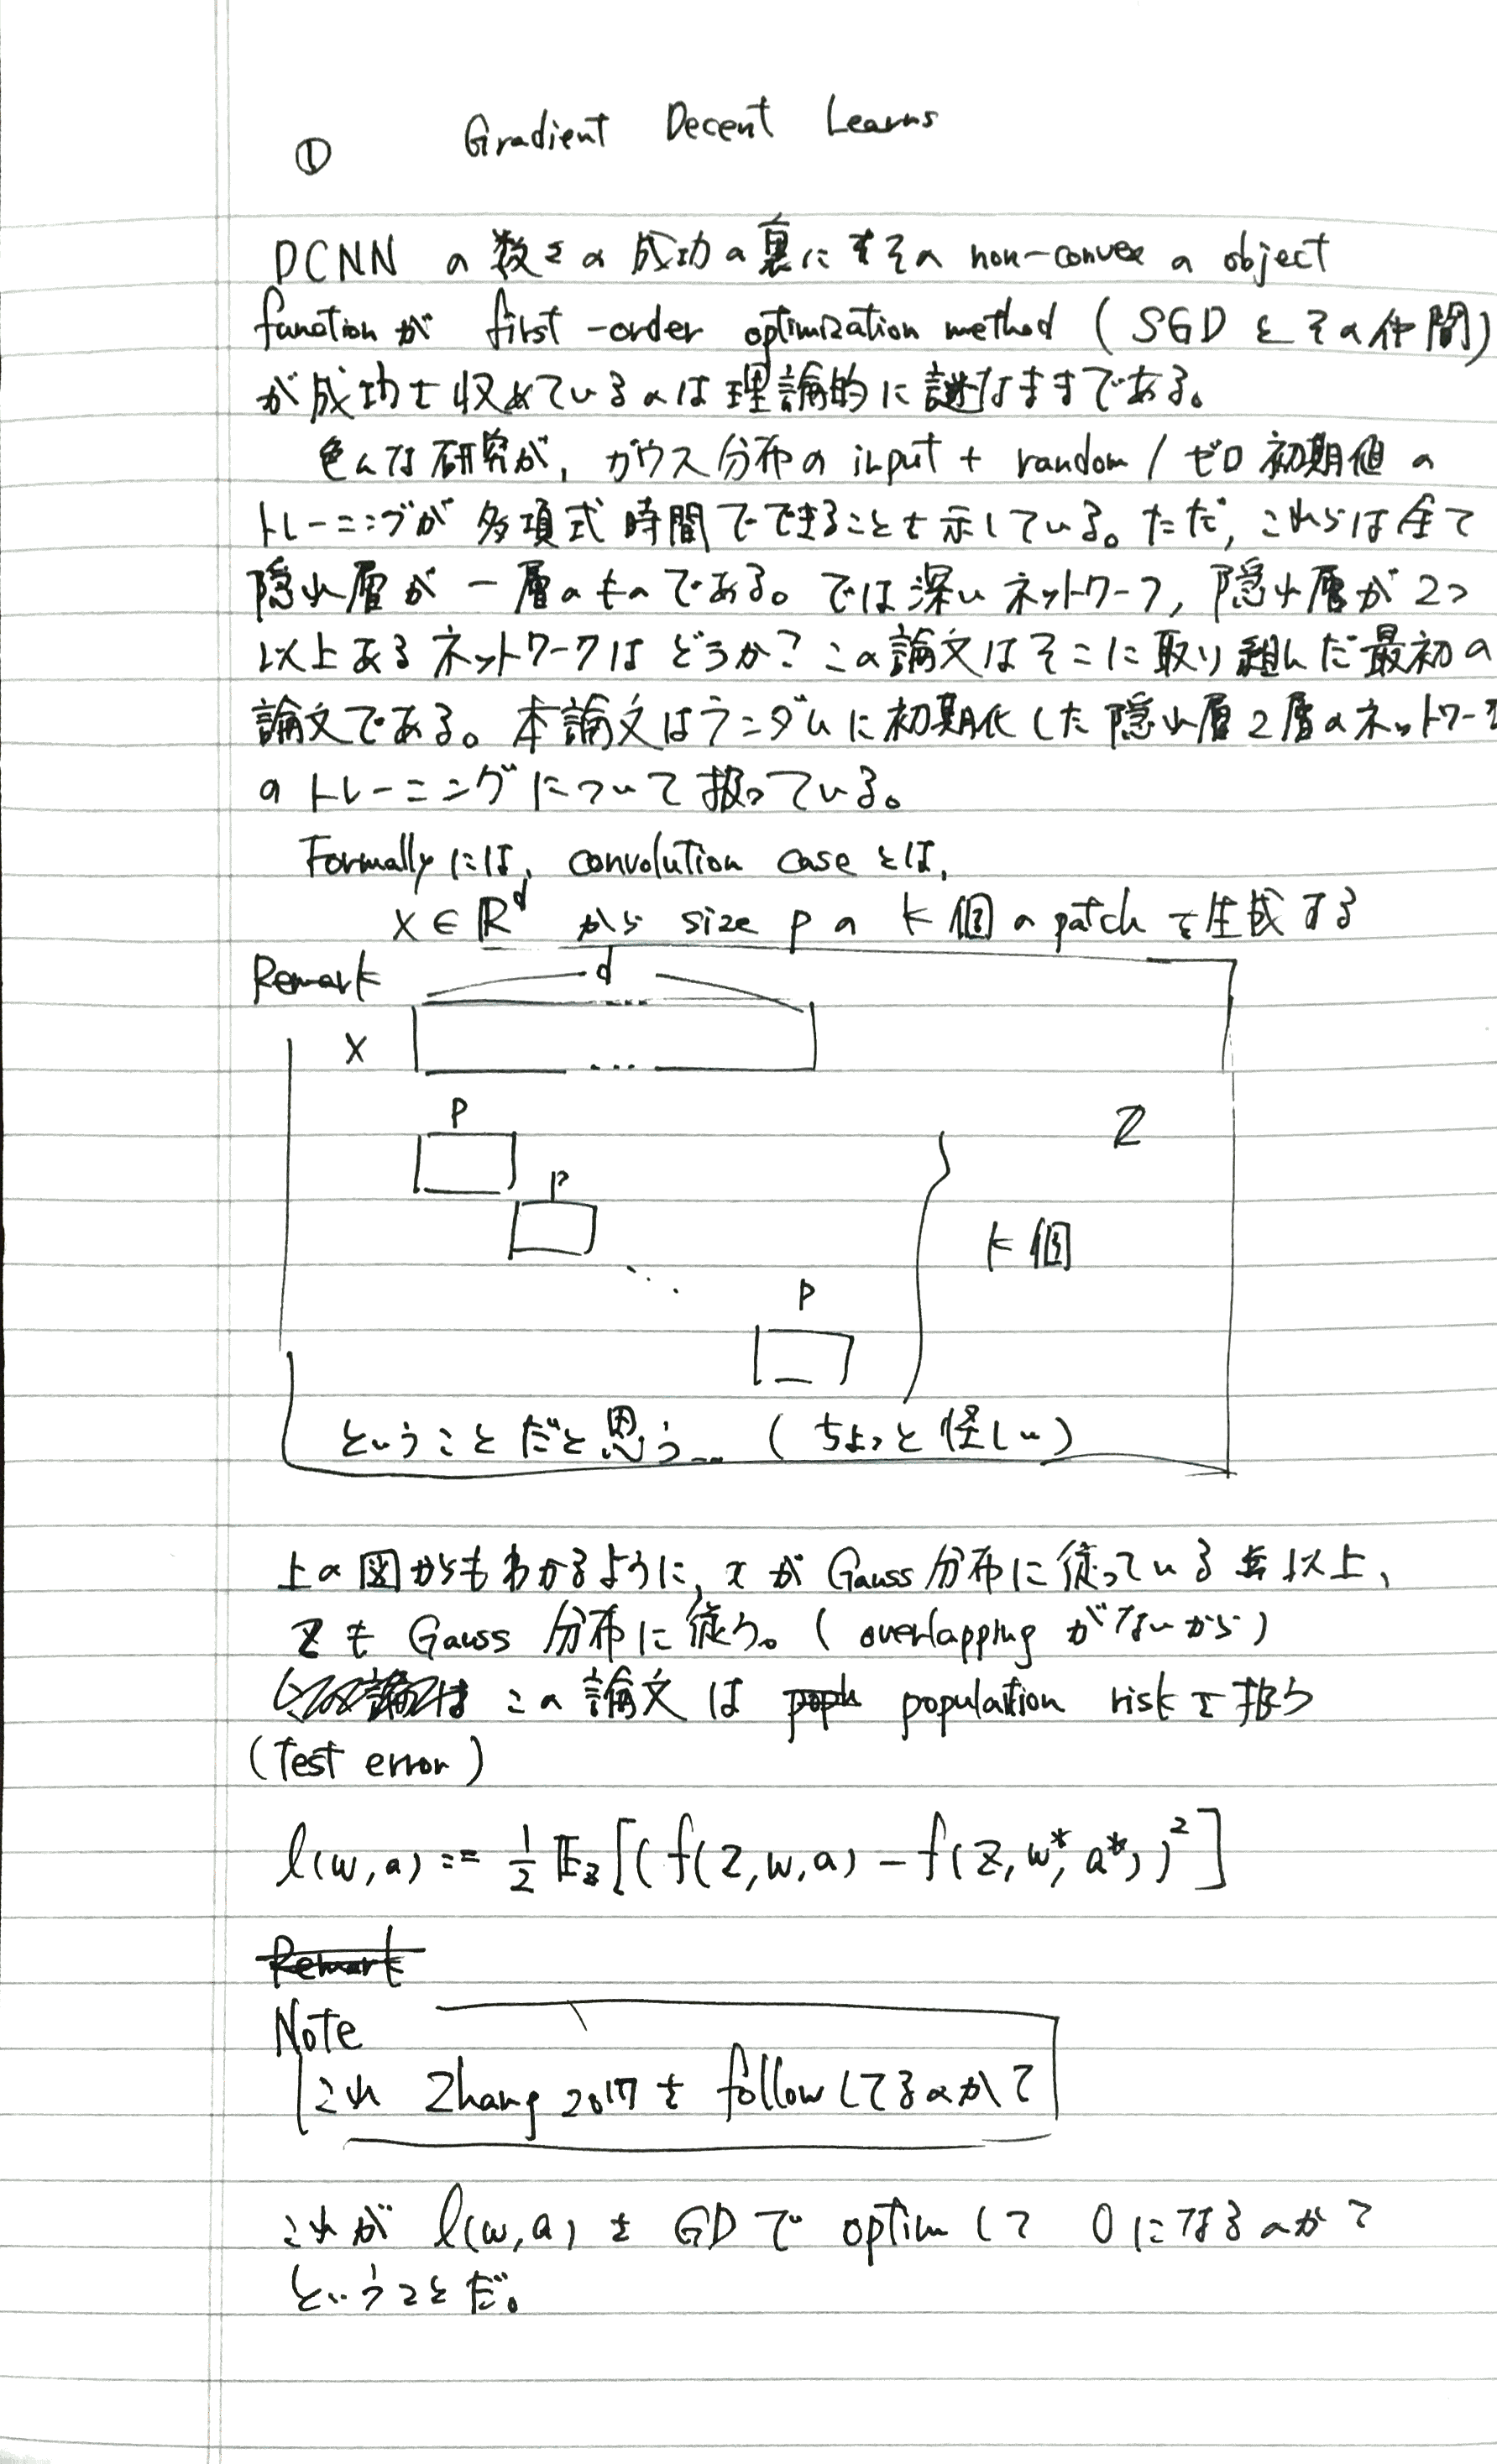 ① Gradient Decent Learns
DCNN の数々の成功の裏に その non-convex の object
function が first-order optimization method (SGD とその仲間)
が成功を収めているのは理論的に謎なままである。
色んな研究が, ガウス分布の input + random / ゼロ初期値の
トレーニングが多項式時間でできることを示している。ただ, これらは全て
隠れ層が一層のものである。では深いネットワーク, 隠れ層が2つ
以上あるネットワークはどうか? この論文はそこに取り組んだ最初の
論文である。本論文はランダムに初期化した隠れ層2層のネットワーク
のトレーニングについて扱っている。
Formally には, convolution case とは,
x ∈ ℝ^d から size p の k 個の patch を生成する
Remark
d
...
x
...
p
Z
p
k 個
p
ということだと思う... (ちょっと怪しい)
上の図からもわかるように, x が Gauss 分布に従っている 以上,
Z も Gauss 分布に従う。( overlapping がないから)
この論文は population risk を扱う
(Test error)
l(w, a) := 1/2 𝔼_Z [(f(Z, w, a) - f(Z, w*, a*))^2]
Remark
Note
これ Zhang 2017 を follow してるのか?
これが l(w, a) を GD で optim して 0 になるのか?
ということだ。